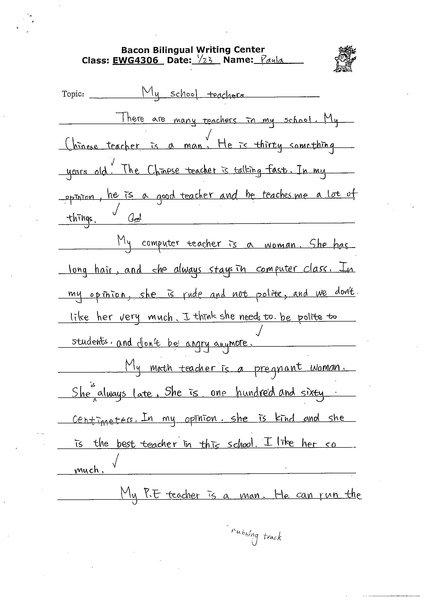 Bacon Bilingual Writing Center
Class: EWG4306 Date: 1/23 Name: Paula
Topic: My school teachers
There are many teachers in my school. My
Chinese teacher is a man. He is thirty something
years old. The Chinese teacher is talking fast. In my
opinion, he is a good teacher and he teaches me a lot of
things. Good
My computer teacher is a woman. She has
long hair, and she always stays in computer class. In
my opinion, she is rude and not polite, and we don't
like her very much. I think she needs to be polite to
students. and don't be angry anymore.
My math teacher is a pregnant woman.
She is always late. She is one hundred and sixty
centimeters. In my opinion. she is kind and she
is the best teacher in this school. I like her so
much.
My P.E teacher is a man. He can run the
running track